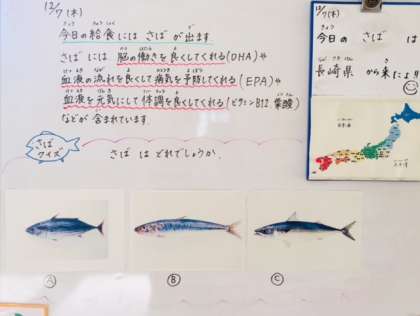 12/7(木)
今日の給食には さばが 出ます。
さば には 脳の働きを良くしてくれる(DHA)や
血液の流れを良くして病気を予防してくれる(EPA)や
血液を元気にして体調を良くしてくれる(ビタミンB12 葉酸)
などが 含まれています。
さば
クイズ
さば は どれでしょうか。
Ⓐ
Ⓑ
Ⓒ
12/7(木)
今日の さば は
長崎県 から来たよ!!